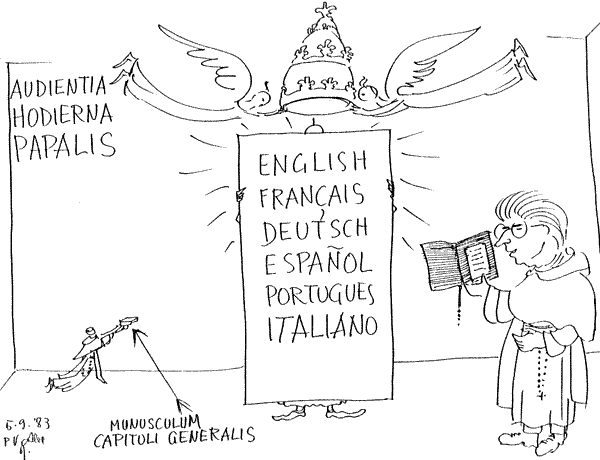 AUDIENTIA
HODIERNA
PAPALIS
ENGLISH
FRANÇAIS
DEUTSCH
ESPAÑOL
PORTUGUES
ITALIANO
MUNUSCULUM
CAPITOLI GENERALIS
5-9.'83